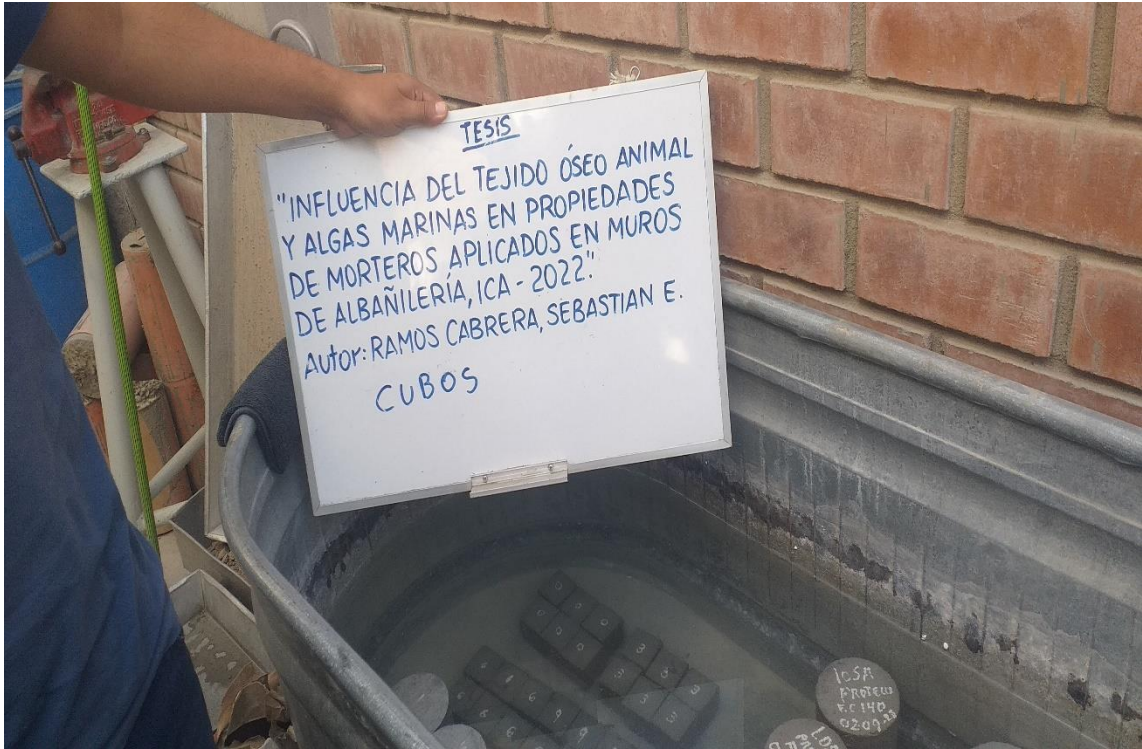 TESIS
"INFLUENCIA DEL TEJIDO ÓSEO ANIMAL
Y ALGAS MARINAS EN PROPIEDADES
DE MORTEROS APLICADOS EN MUROS
DE ALBAÑILERÍA, ICA - 2022".
Autor: RAMOS CABRERA, SEBASTIAN E.
CUBOS